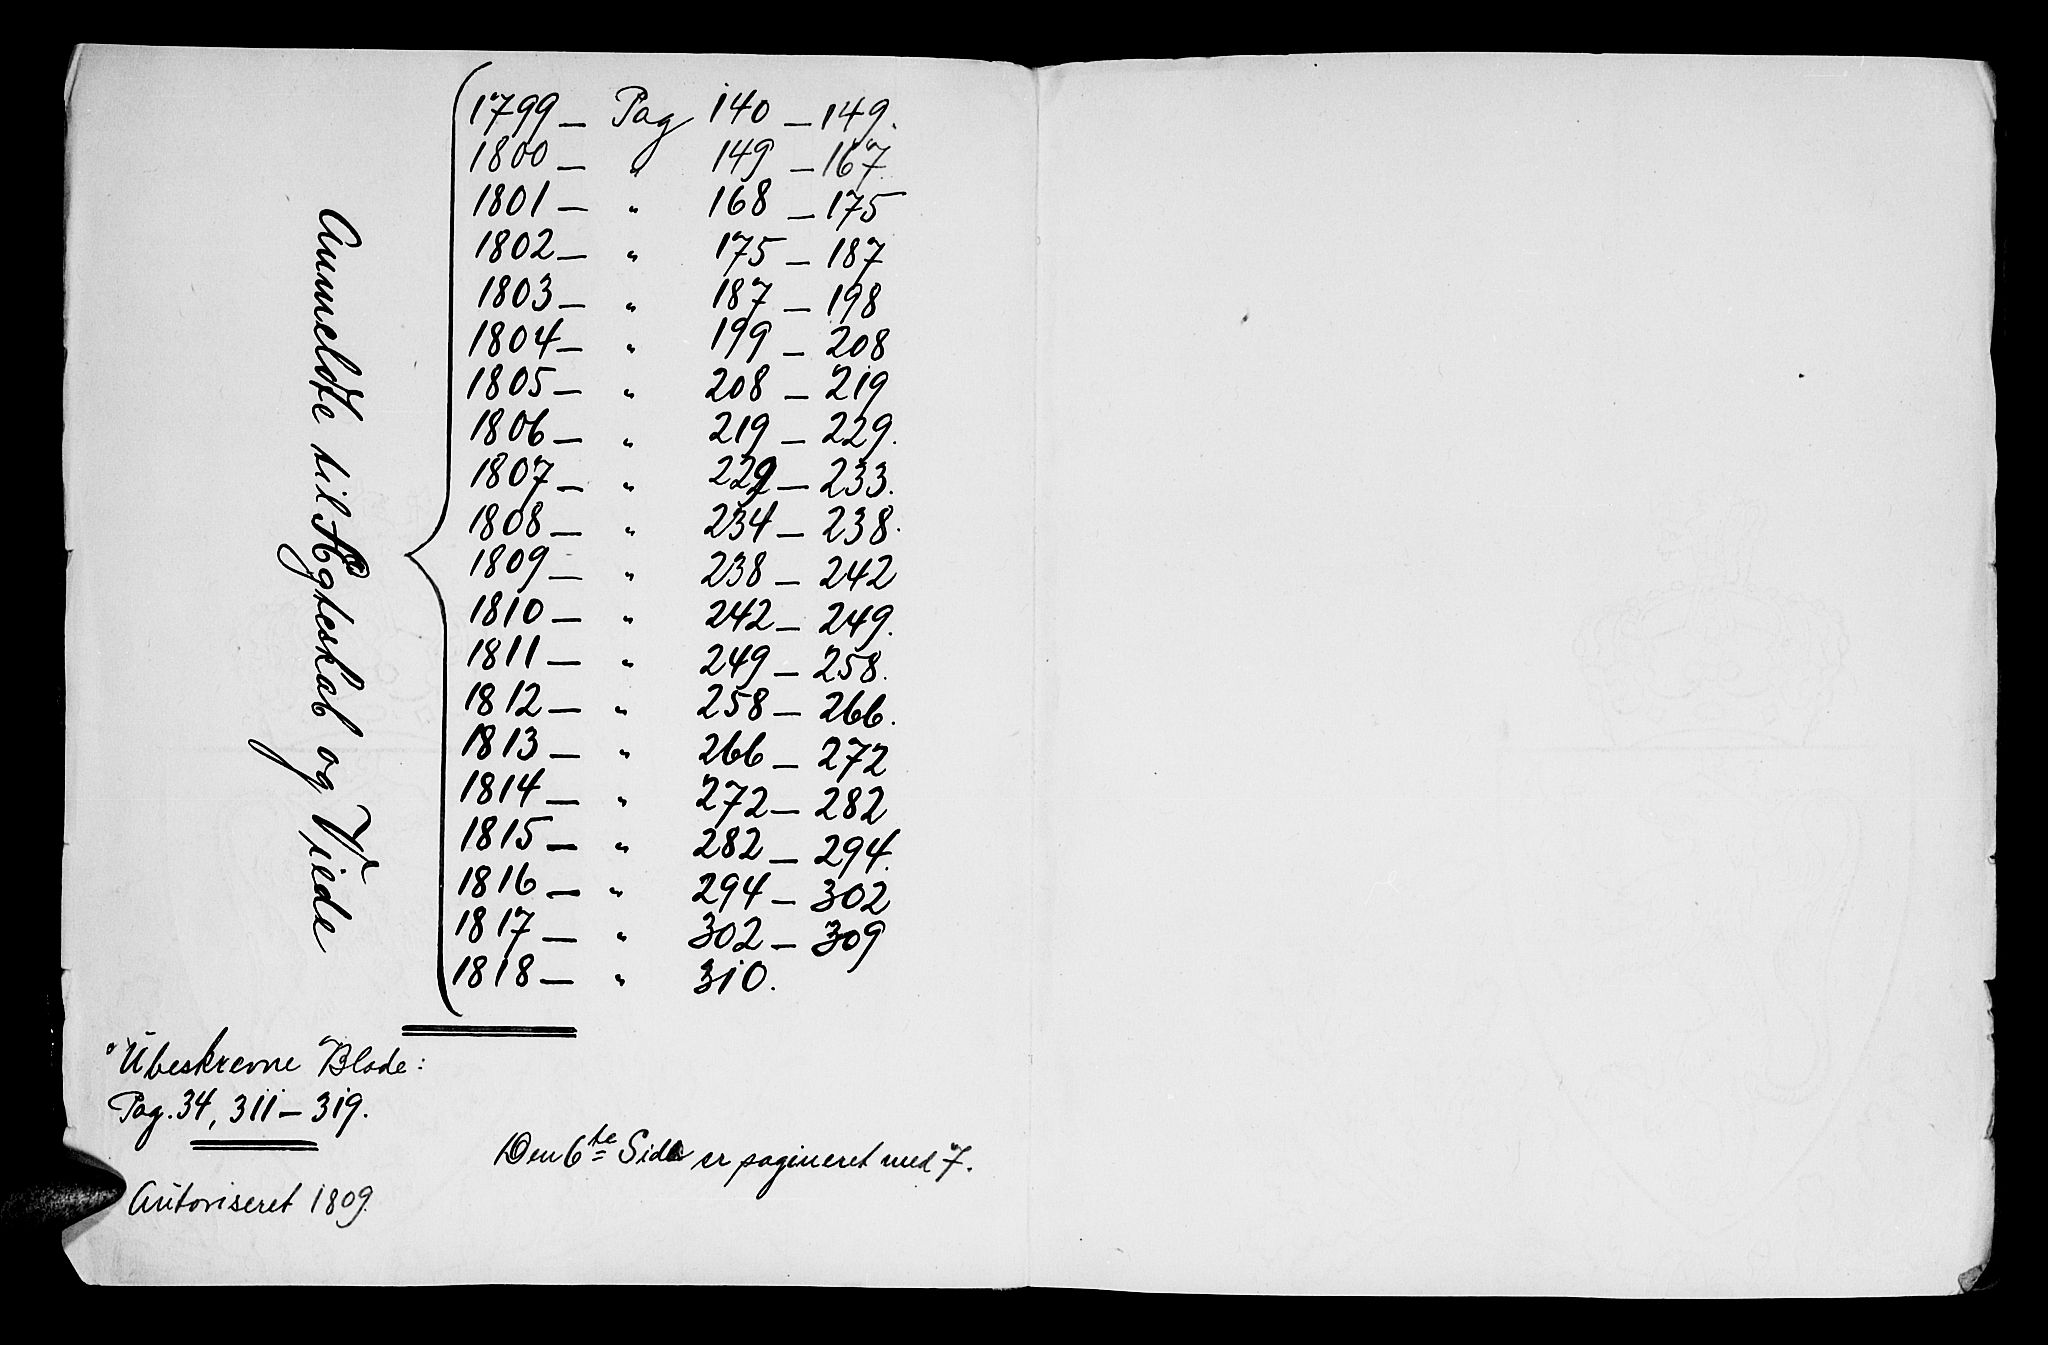 Anmeldte til Ægteskab og Viede
1799 — Pag 140 — 149.
1800 — " 149 — 167
1801 — " 168 — 175
1802 — " 175 — 187
1803 — " 187 — 198
1804 — " 199 — 208
1805 — " 208 — 219
1806 — " 219 — 229.
1807 — " 229 — 233.
1808 — " 234 — 238.
1809 — " 238 — 242
1810 — " 242 — 249.
1811 — " 249 — 258.
1812 — " 258 — 266.
1813 — " 266 — 272
1814 — " 272 — 282
1815 — " 282 — 294.
1816 — " 294 — 302
1817 — " 302 — 309
1818 — " 310.
Ubeskrevne Blade:
Pag. 34, 311 — 319.
Den 6te Side er pagineret med 7.
Autoriseret 1809.